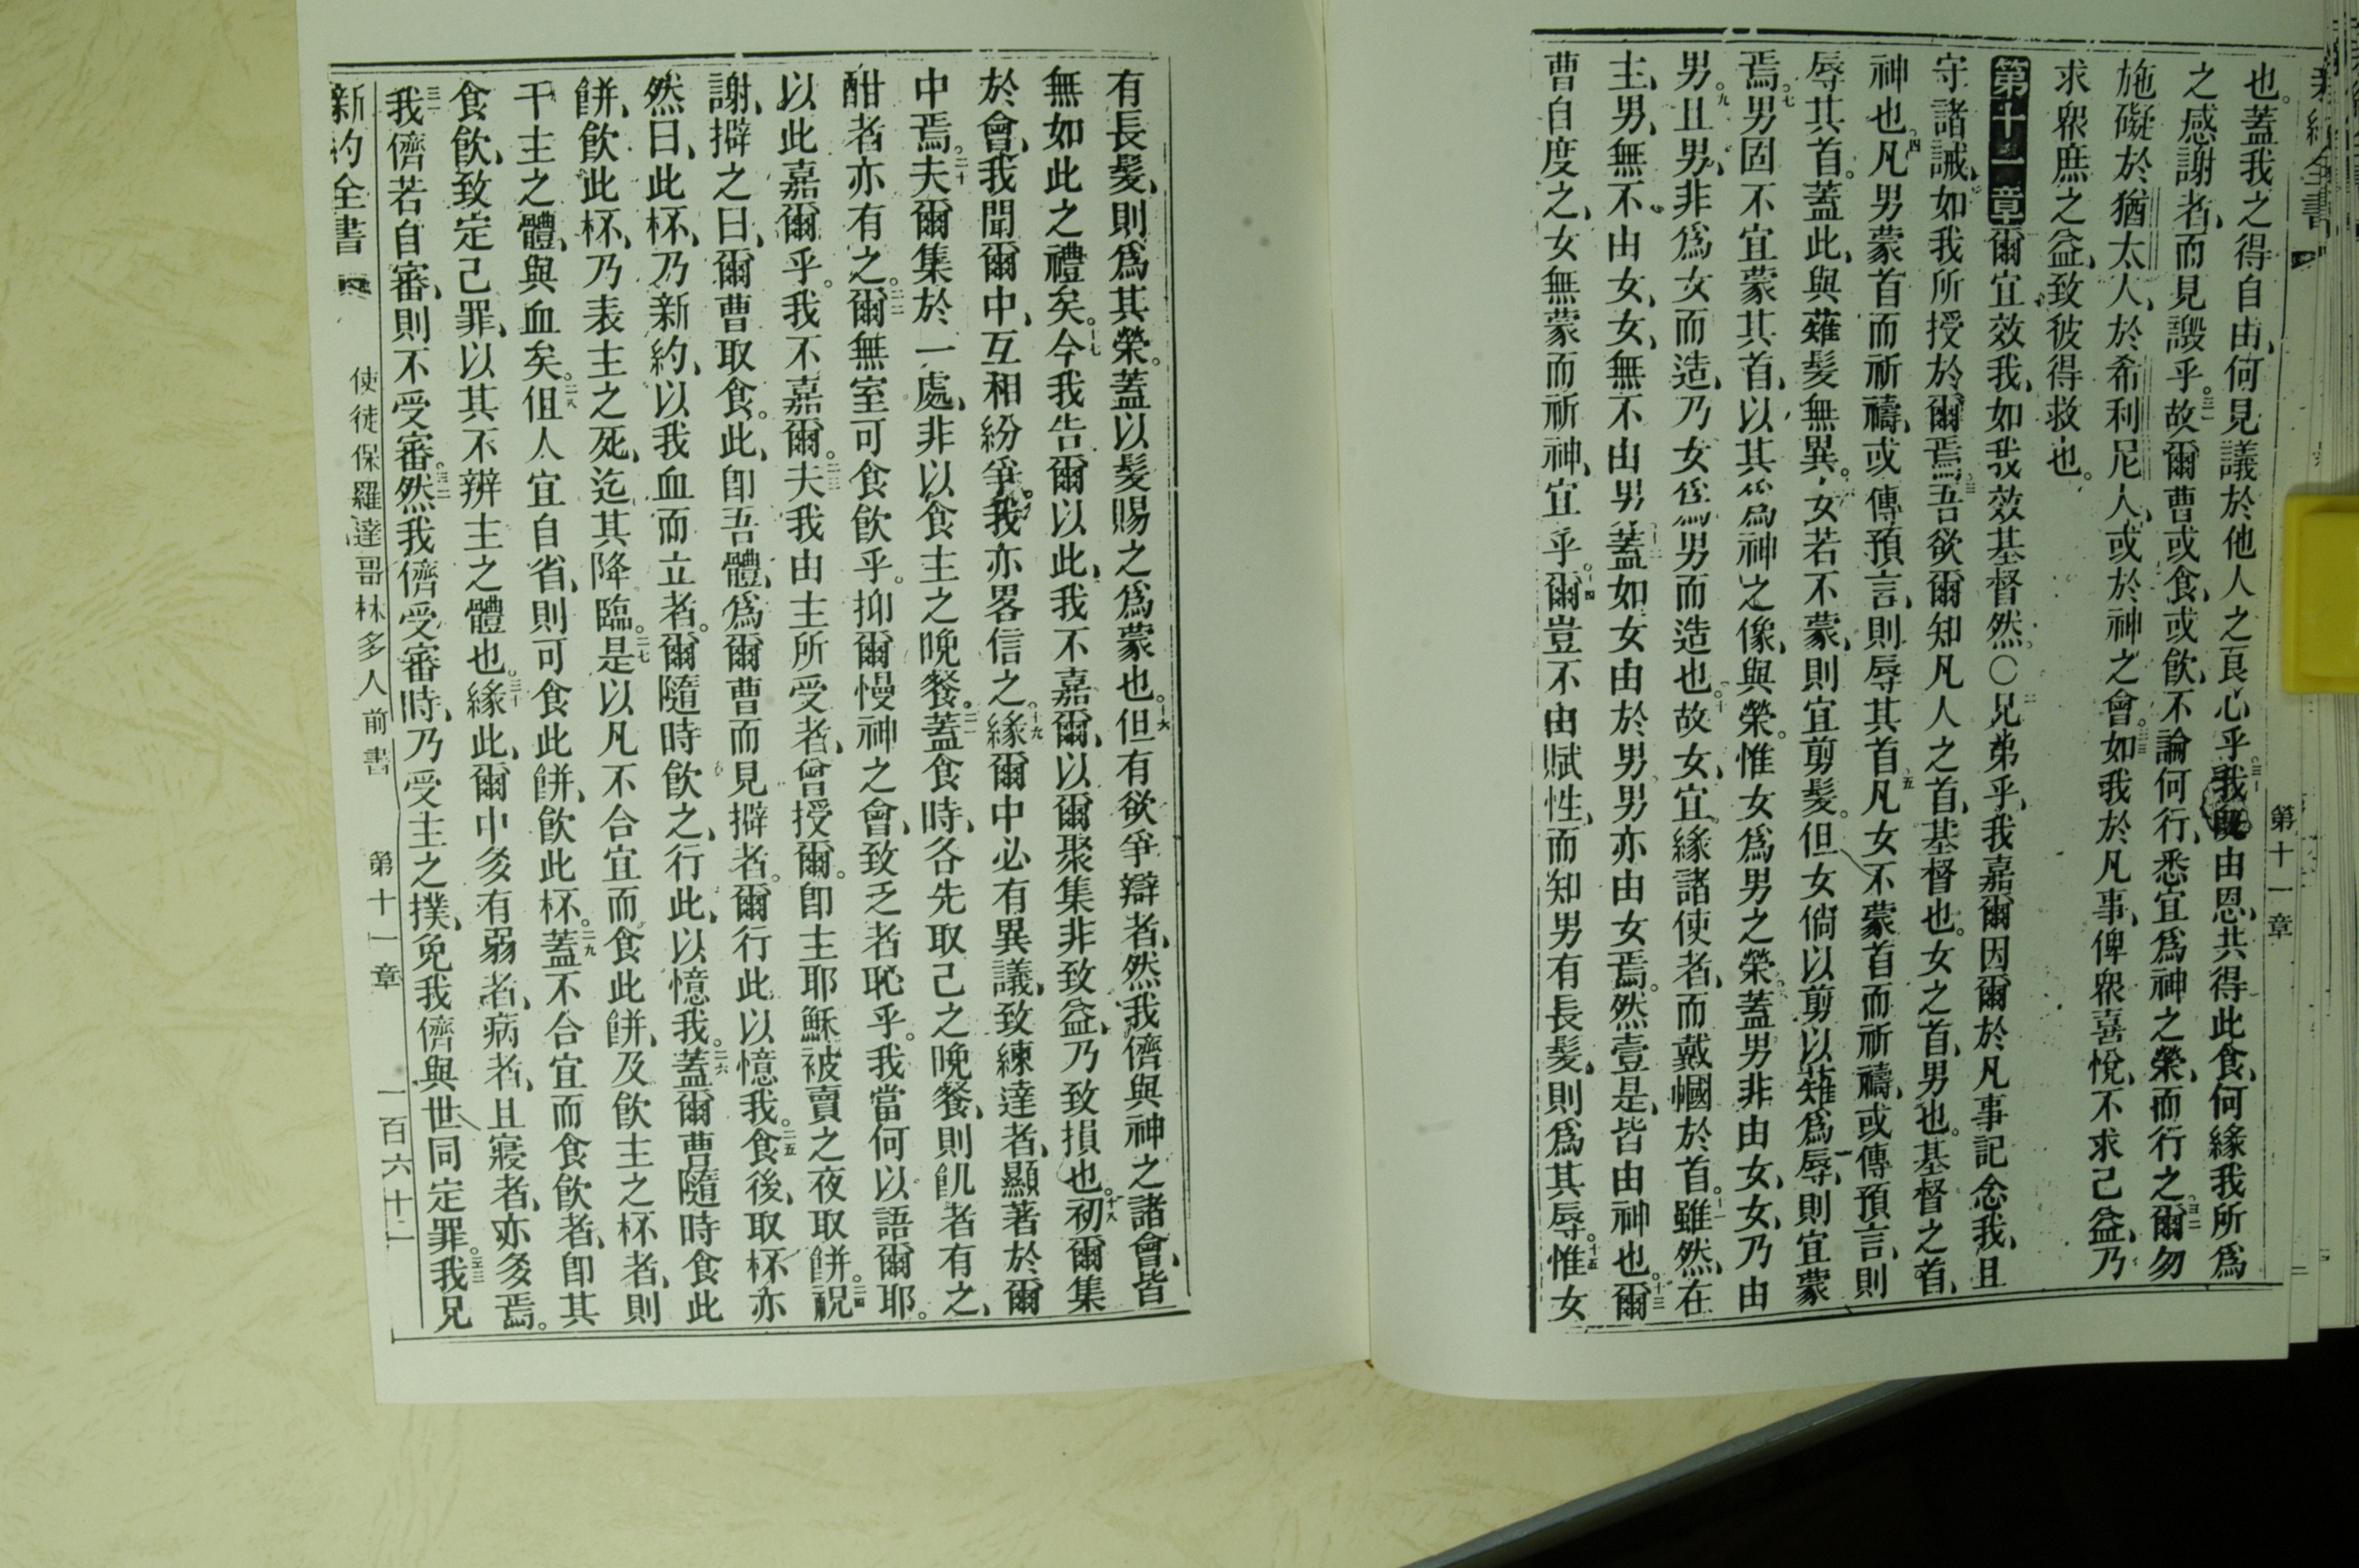 第十一章
也。蓋我之得自由、何見議於他人之良心乎。三十我既由恩、共得此食、何緣我所爲
之感謝者、而見譭乎。三一故爾曹或食、或飮、不論何行、悉宜爲神之榮、而行之。三二爾勿
施礙於猶太人、於希利尼人、或於神之會。三三如我於凡事、俾衆喜悅、不求己益、乃
求衆庶之益、致彼得救也。
第十一章爾宜效我、如我效基督然。〇二兄弟乎、我嘉爾因爾於凡事記念我、且
守諸誡、如我所授於爾焉。三吾欲爾知凡人之首、基督也。女之首、男也。基督之首、
神也。四凡男蒙首而祈禱、或傳預言、則辱其首。五凡女不蒙首而祈禱、或傳預言、則
辱其首。蓋此、與薙髮無異。六女若不蒙、則宜剪髮。但女倘以剪以薙爲辱、則宜蒙
焉。七男固不宜蒙其首、以其爲神之像、與榮。惟女爲男之榮。八蓋男非由女、女乃由
男。九且男、非爲女而造、乃女爲男而造也。十故女、宜緣諸使者、而戴幗於首。十一雖然、在
主、男、無不由女、女、無不由男。十二蓋如女由於男、男亦由女焉。然壹是、皆由神也。十三爾
曹自度之、女無蒙而祈神、宜乎。十四爾豈不由賦性、而知男有長髮、則爲其辱。十五惟女
有長髮、則爲其榮。蓋以髮賜之爲蒙也。十六但有欲爭辯者、然我儕與神之諸會、皆
無如此之禮矣。十七今我吿爾以此、我不嘉爾、以爾聚集非致益、乃致損也。十八初爾集
於會、我聞爾中、互相紛爭。我亦畧信之。十九緣爾中必有異議、致練達者、顯著於爾
中焉。二十夫爾集於一處、非以食主之晚餐。二一蓋食時、各先取己之晚餐、則飢者有之、
酣者亦有之。二二爾無室可食飮乎。抑爾慢神之會、致乏者恥乎。我當何以語爾耶。
以此嘉爾乎。我不嘉爾。二三夫我由主所受者、曾授爾。卽主耶穌被賣之夜取餅。二四祝
謝、擗之曰、爾曹取食。此、卽吾體、爲爾曹而見擗者。爾行此以憶我。二五食後、取杯亦
然曰、此杯、乃新約、以我血而立者。爾隨時飮之、行此、以憶我。二六蓋爾曹隨時食此
餅、飮此杯、乃表主之死、迄其降臨。二七是以凡不合宜而食此餅、及飮主之杯者、則
干主之體、與血矣。二八伹人宜自省、則可食此餅、飮此杯。二九蓋不合宜而食飮者、卽其
食飮、致定己罪、以其不辨主之體也。三十緣此、爾中多有弱者、病者、且寢者、亦多焉。
三一我儕若自審、則不受審。三二然我儕受審時、乃受主之撲、免我儕與世同定罪。三三我兄
新約全書 使徒保羅達哥林多人前書 第十一章 一百六十二